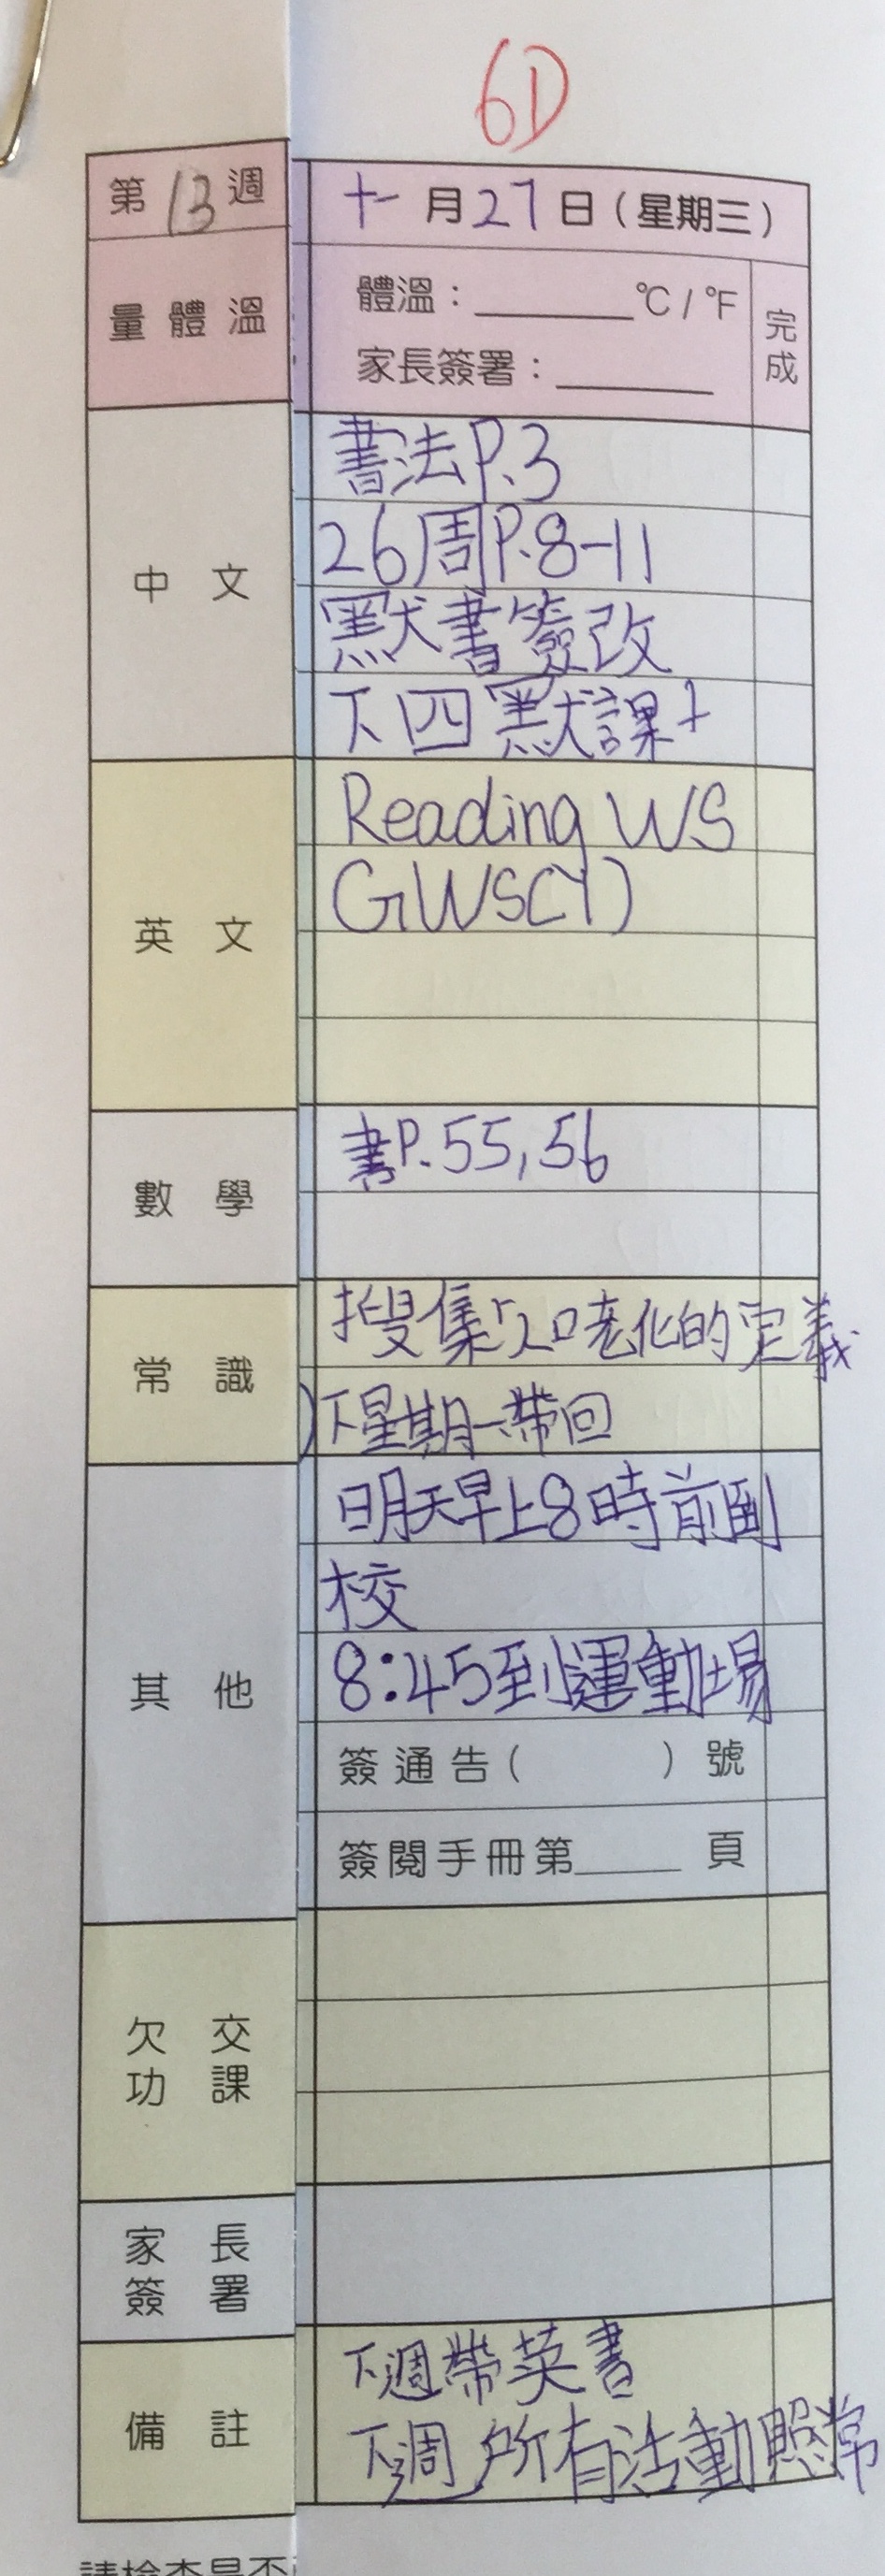 6D
第13週
十一月27日(星期三)
量體溫
體溫：______°C / °F
家長簽署：______
完成
中文
書法P.3
26周P.8-11
默書簽改
下四默課十
英文
Reading WS
GWS(Y)
數學
書P.55,56
常識
搜集「人口老化的定義
)下星期一帶回
其他
明天早上8時前到
校
8:45到運動場
簽通告(　　　)號
簽閱手冊第____頁
欠交
功課
家長
簽署
備註
下週帶英書
下週所有活動照常
請檢查是否